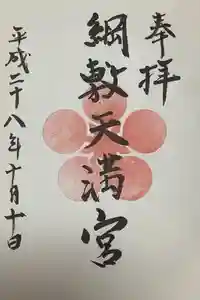 奉拝
綱敷天満宮
平成二十八年十月十日